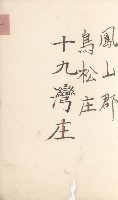 鳳山郡
鳥松庄
十九灣庄